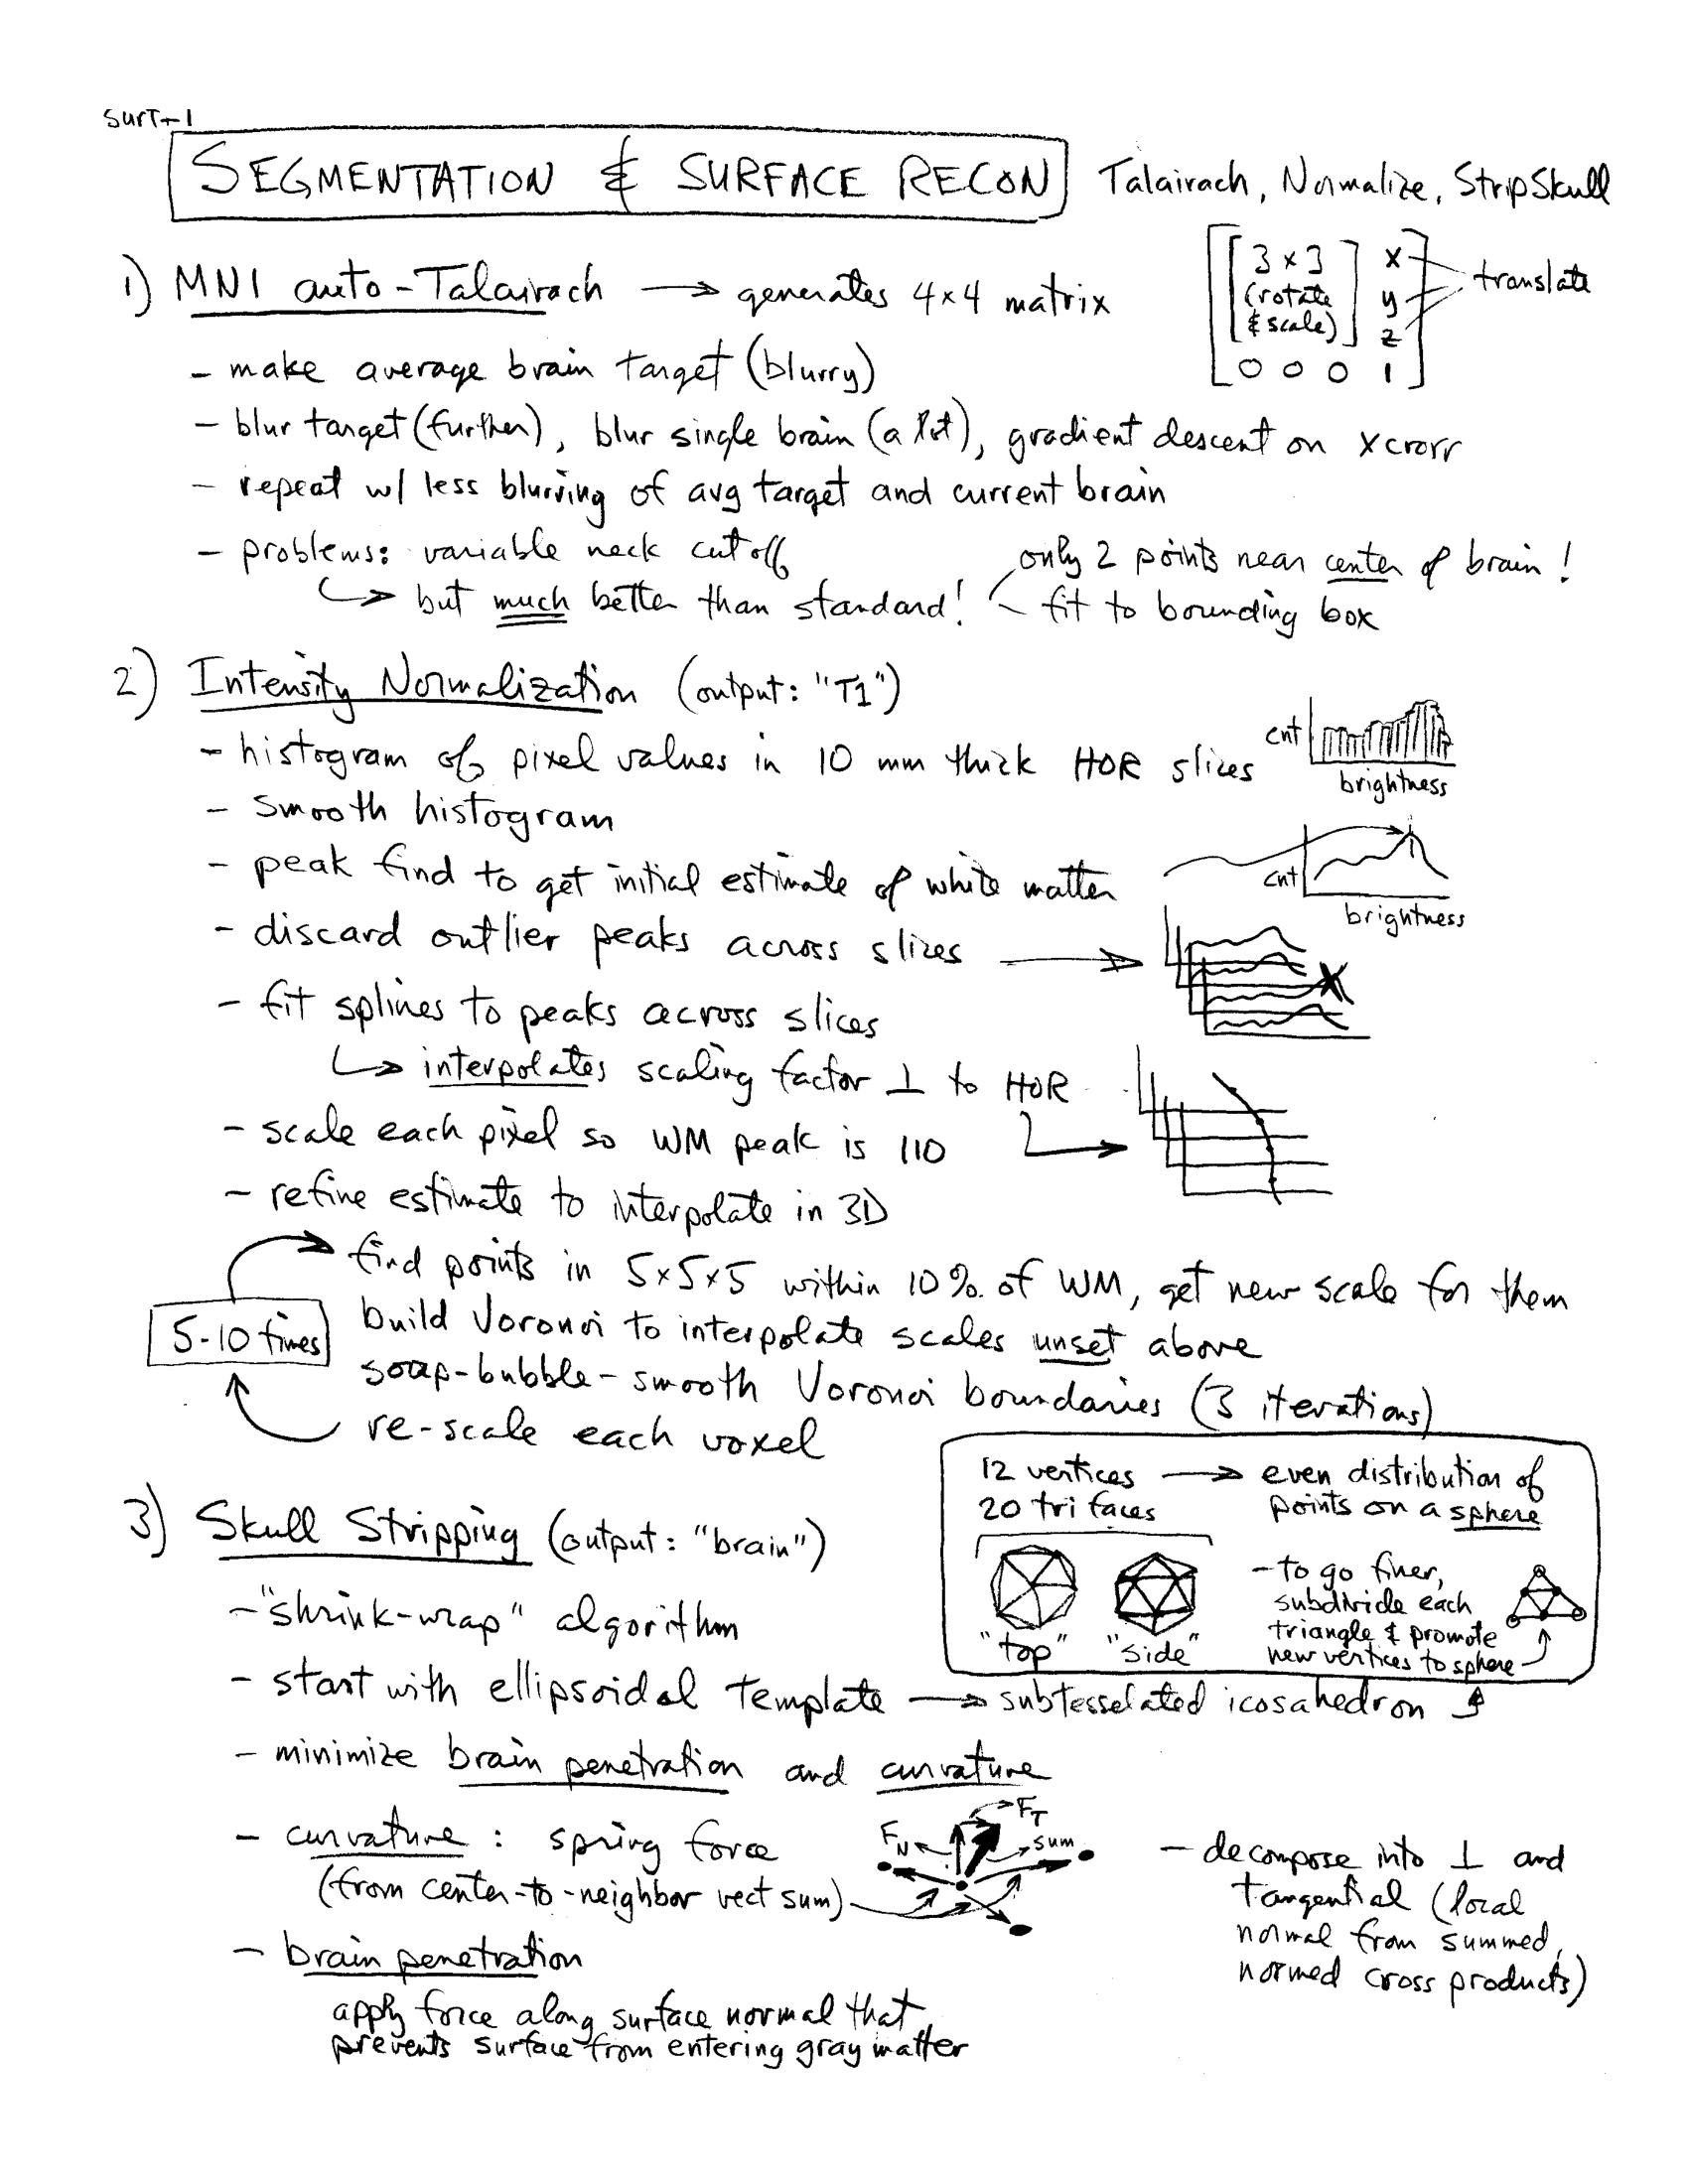 surf-1
SEGMENTATION & SURFACE RECON
Talairach, Normalize, StripSkull
1) MNI auto-Talairach → generates 4×4 matrix
[3×3] x
(rotate y translate
& scale) z
0 0 0 1
- make average brain target (blurry)
- blur target (further), blur single brain (a lot), gradient descent on xcrorr
- repeat w/ less blurring of avg target and current brain
- problems: variable neck cutoff
↳ but much better than standard!
only 2 points near center of brain!
fit to bounding box
2) Intensity Normalization (output: "T1")
- histogram of pixel values in 10 mm thick HOR slices
cnt
brightness
- smooth histogram
- peak find to get initial estimate of white matter
cnt
brightness
- discard outlier peaks across slices →
- fit splines to peaks across slices
↳ interpolates scaling factor ⊥ to HOR
- scale each pixel so WM peak is 110
- refine estimate to interpolate in 3D
find points in 5×5×5 within 10% of WM, get new scale for them
5-10 times
build Voronoi to interpolate scales unset above
soap-bubble-smooth Voronoi boundaries (3 iterations)
re-scale each voxel
12 vertices → even distribution of
20 tri faces points on a sphere
"top" "side"
- to go finer,
subdivide each
triangle & promote
new vertices to sphere
3) Skull Stripping (output: "brain")
- "shrink-wrap" algorithm
- start with ellipsoidal template → subtesselated icosahedron
- minimize brain penetration and curvature
- curvature: spring force
(from center-to-neighbor vect sum)
F_N F_T
sum
- decompose into ⊥ and
tangential (local
normal from summed,
normed cross products)
- brain penetration
apply force along surface normal that
prevents surface from entering gray matter